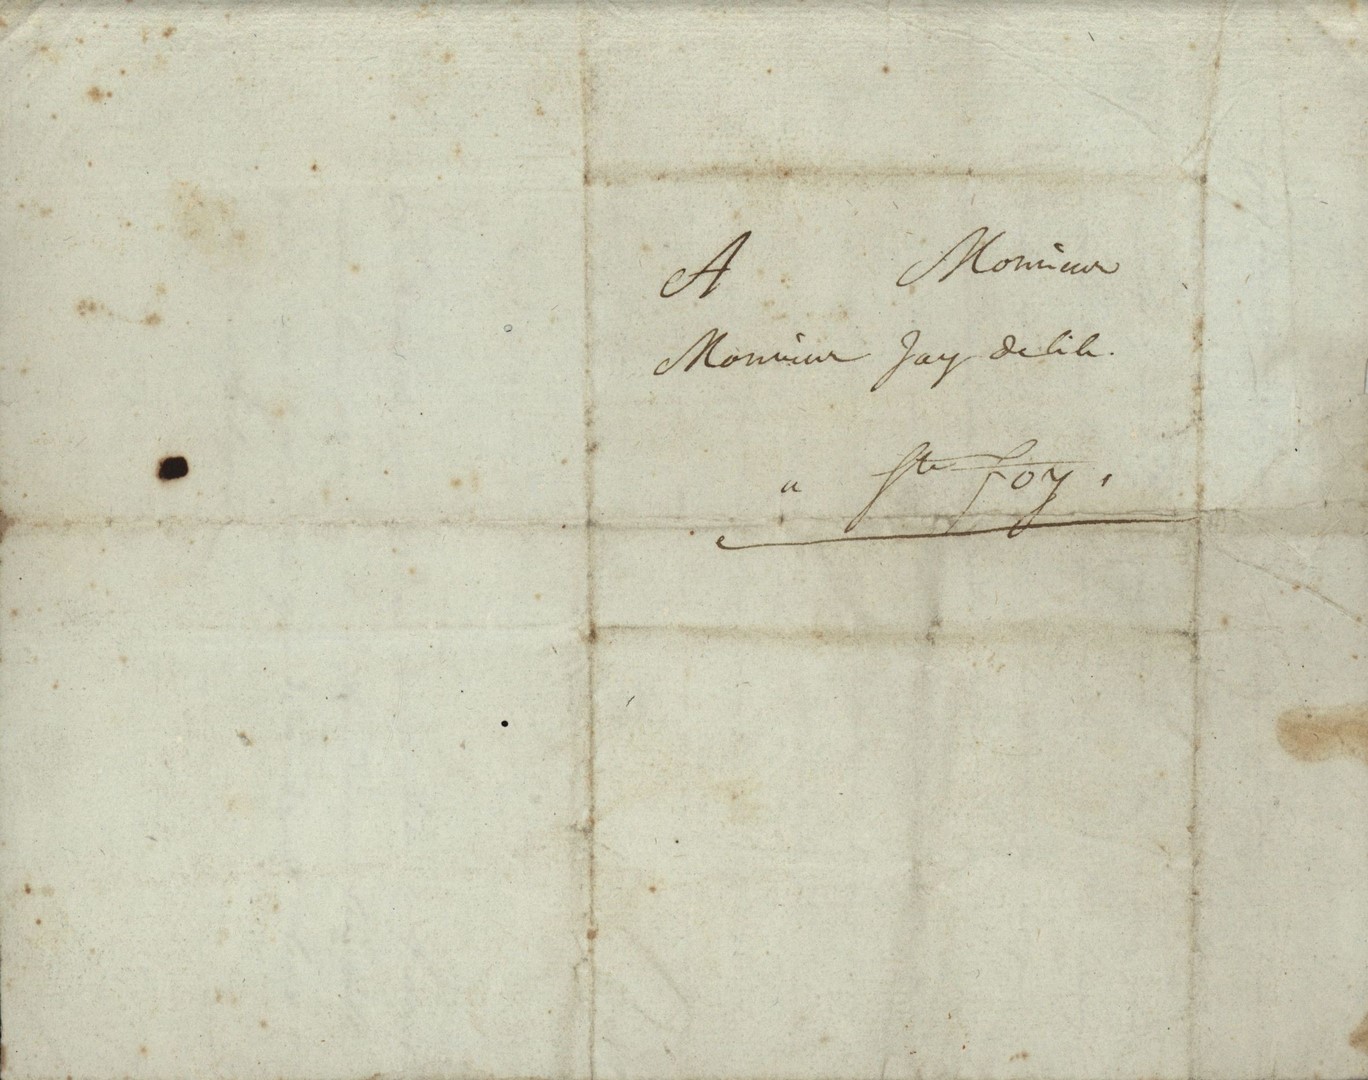 A Monsieur
Monsieur Jay delile.
a Ste Foy.